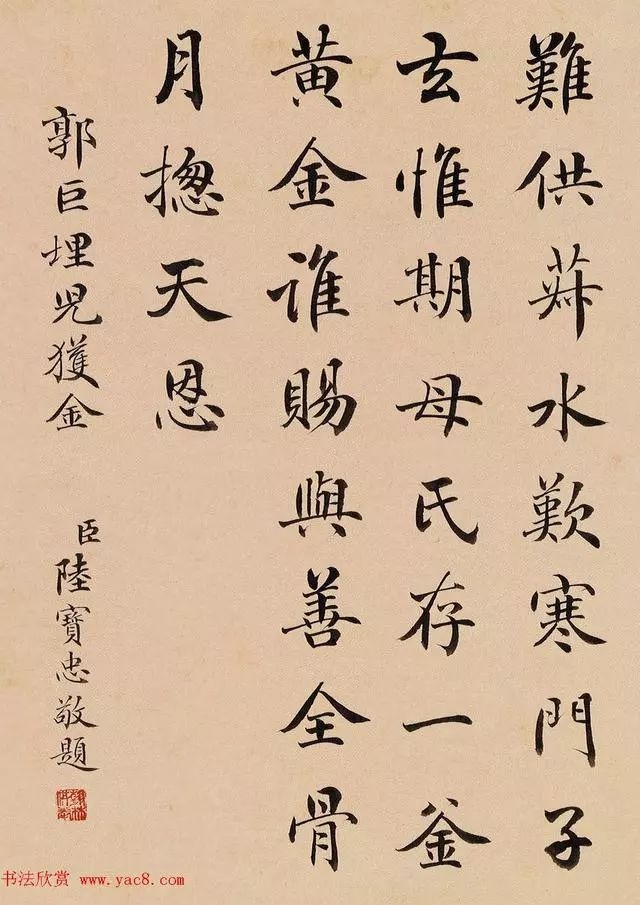 難供菽水歎寒門子
去惟期母氏存一釜
黃金誰賜與善全骨
月揔天恩
郭巨埋児獲金
臣陸寶忠敬題
书法欣赏 www.yac8.com